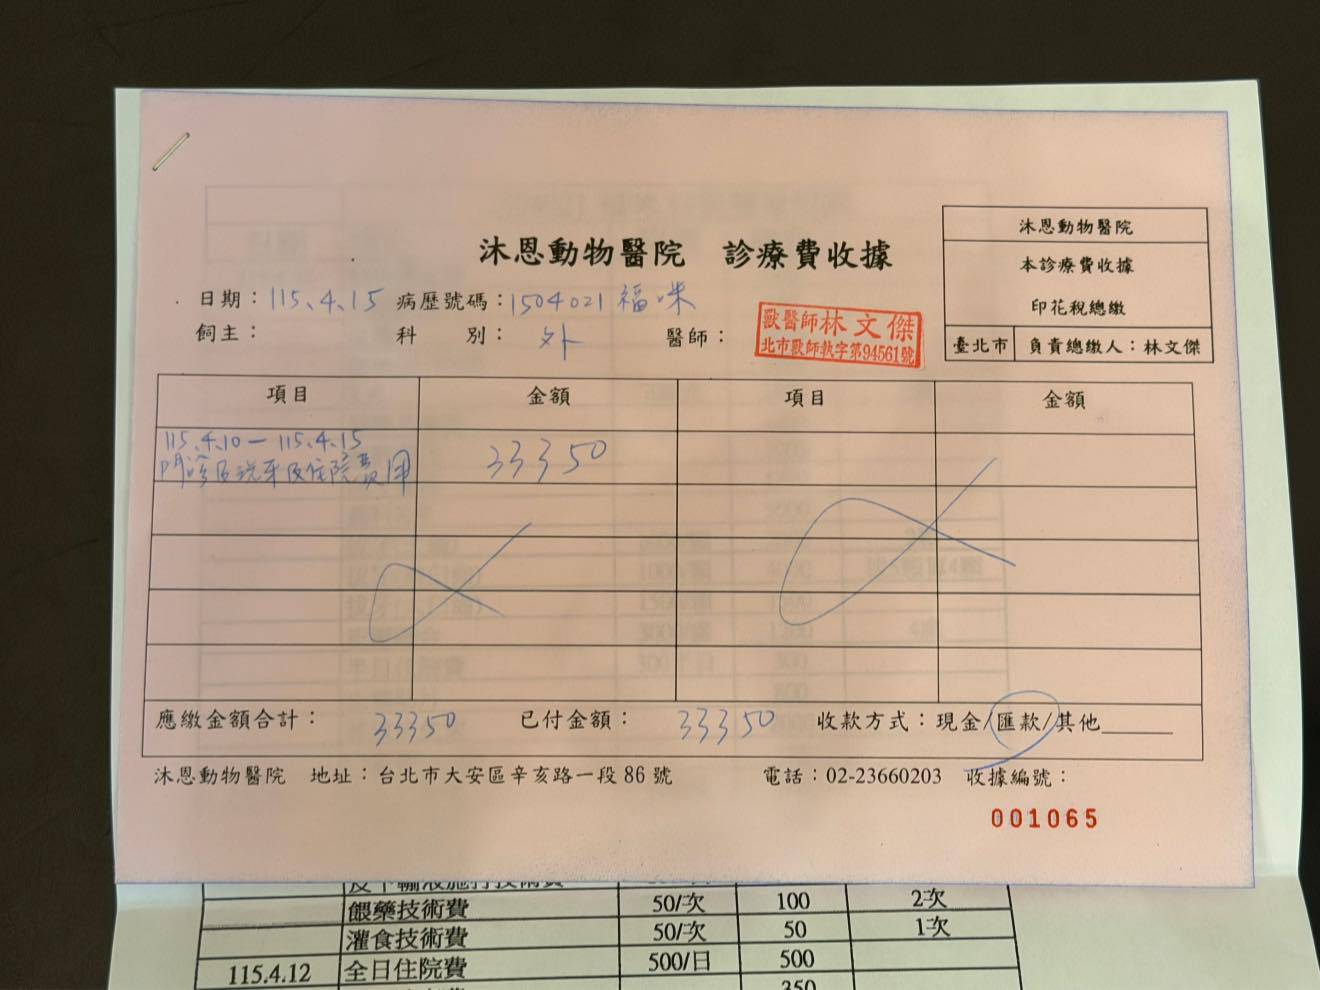 沐恩動物醫院 診療費收據
沐恩動物醫院
本診療費收據
印花稅總繳
臺北市 負責總繳人：林文傑
日期：115.4.15 病歷號碼：1504021 福咪
飼主： 科 別：外 醫師：
獸醫師林文傑
北市獸師執字第94561號
項目 金額 項目 金額
115.4.10－115.4.15
門診及洗牙及住院費用 33350
應繳金額合計：33350 已付金額：33350 收款方式：現金/匯款/其他______
沐恩動物醫院 地址：台北市大安區辛亥路一段86號 電話：02-23660203 收據編號：
001065
皮下輸液施打技術費
餵藥技術費 50/次 100 2次
灌食技術費 50/次 50 1次
115.4.12 全日住院費 500/日 500
350